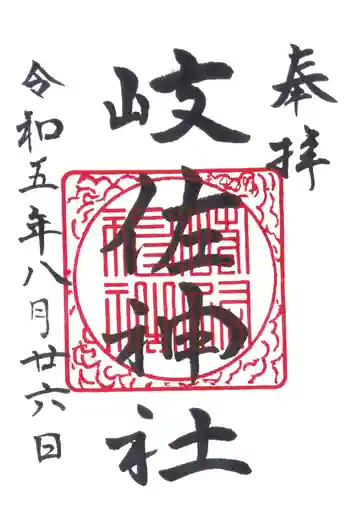 奉拝
岐佐神社
令和五年八月廿六日